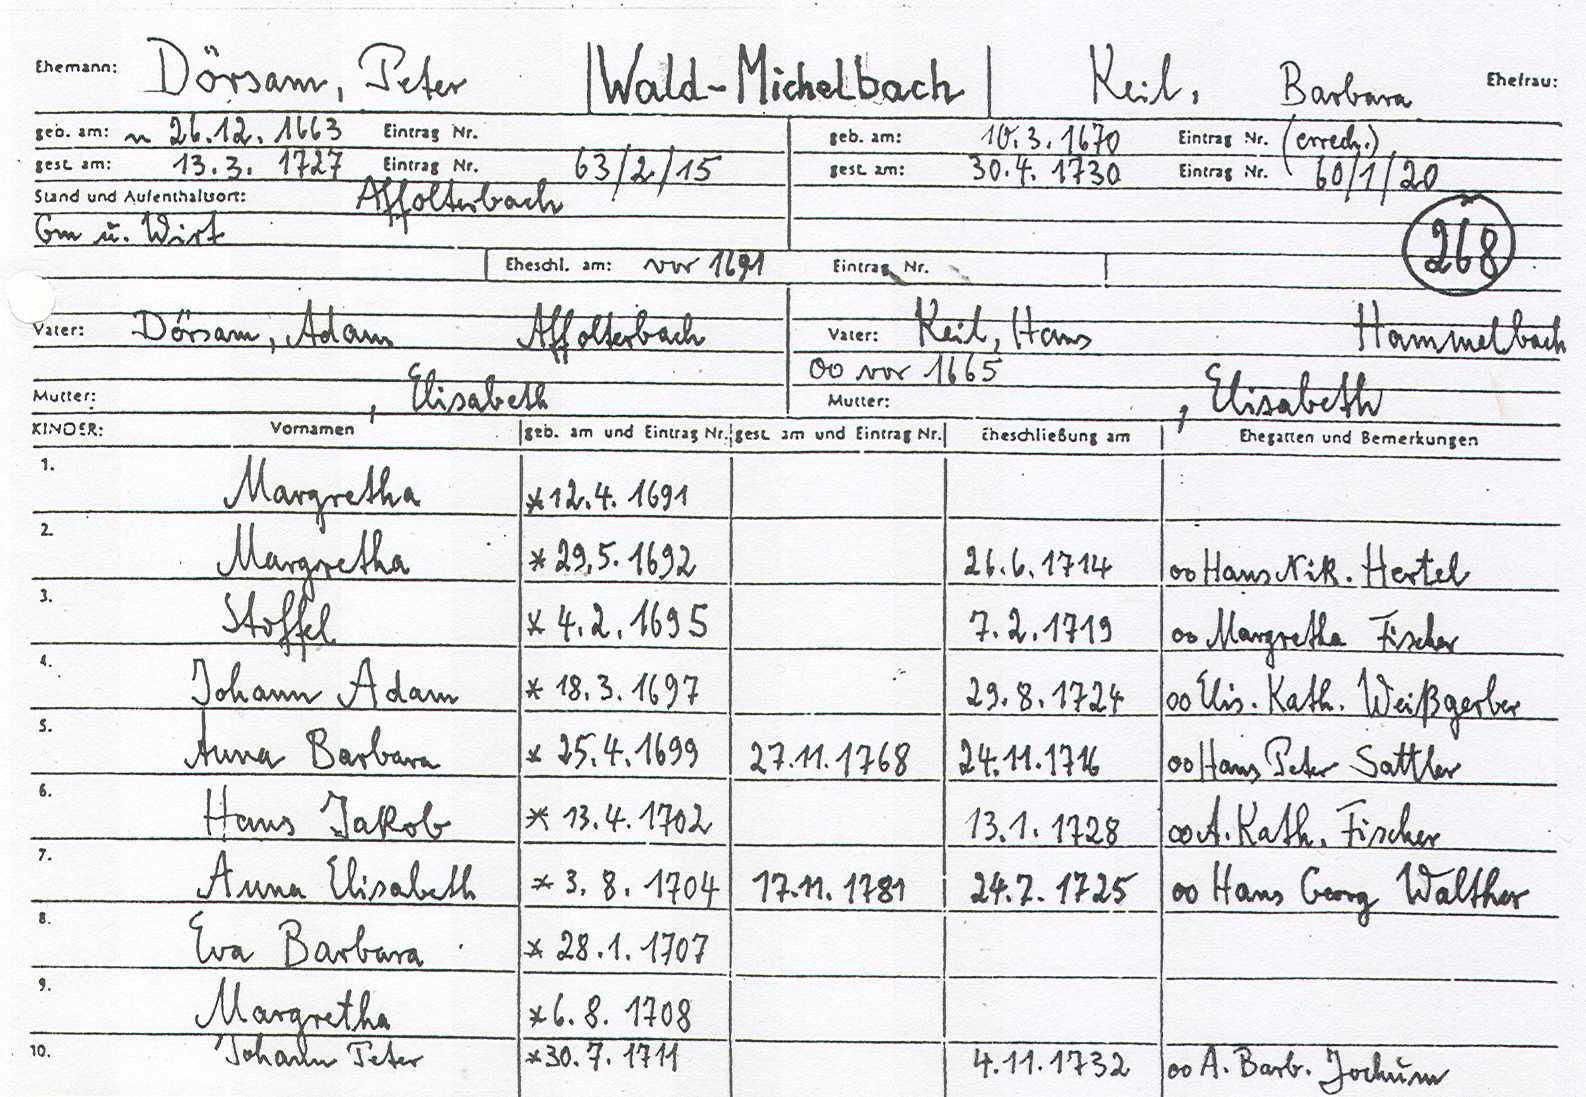 Ehemann: Dörsam, Peter | Wald-Michelbach | Keil, Barbara Ehefrau:
geb. am: ~ 26.12.1663 Eintrag Nr. geb. am: 10.3.1670 Eintrag Nr. (errech.)
gest. am: 13.3.1727 Eintrag Nr. 63/2/15 gest. am: 30.4.1730 Eintrag Nr. 60/1/20
Stand und Aufenthaltsort: Affolterbach
Gm u. Wirt 268
Eheschl. am: vor 1691 Eintrag Nr.
Vater: Dörsam, Adam Affolterbach Vater: Keil, Hans Hammelbach
oo vor 1665
Mutter: , Elisabeth Mutter: , Elisabeth
KINDER: Vornamen geb. am und Eintrag Nr. gest. am und Eintrag Nr. Eheschließung am Ehegatten und Bemerkungen
1. Margretha * 12.4.1691
2. Margretha * 29.5.1692 26.6.1714 oo Hans Nik. Hertel
3. Stoffel * 4.2.1695 7.2.1719 oo Margretha Fischer
4. Johann Adam * 18.3.1697 29.8.1724 oo Elis. Kath. Weißgerber
5. Anna Barbara * 25.4.1699 27.11.1768 24.11.1716 oo Hans Peter Sattler
6. Hans Jakob * 13.4.1702 13.1.1728 oo A. Kath. Fischer
7. Anna Elisabeth * 3.8.1704 17.11.1781 24.7.1725 oo Hans Georg Walther
8. Eva Barbara * 28.1.1707
9. Margretha * 6.8.1708
10. Johann Peter * 30.7.1711 4.11.1732 oo A. Barb. Jochum